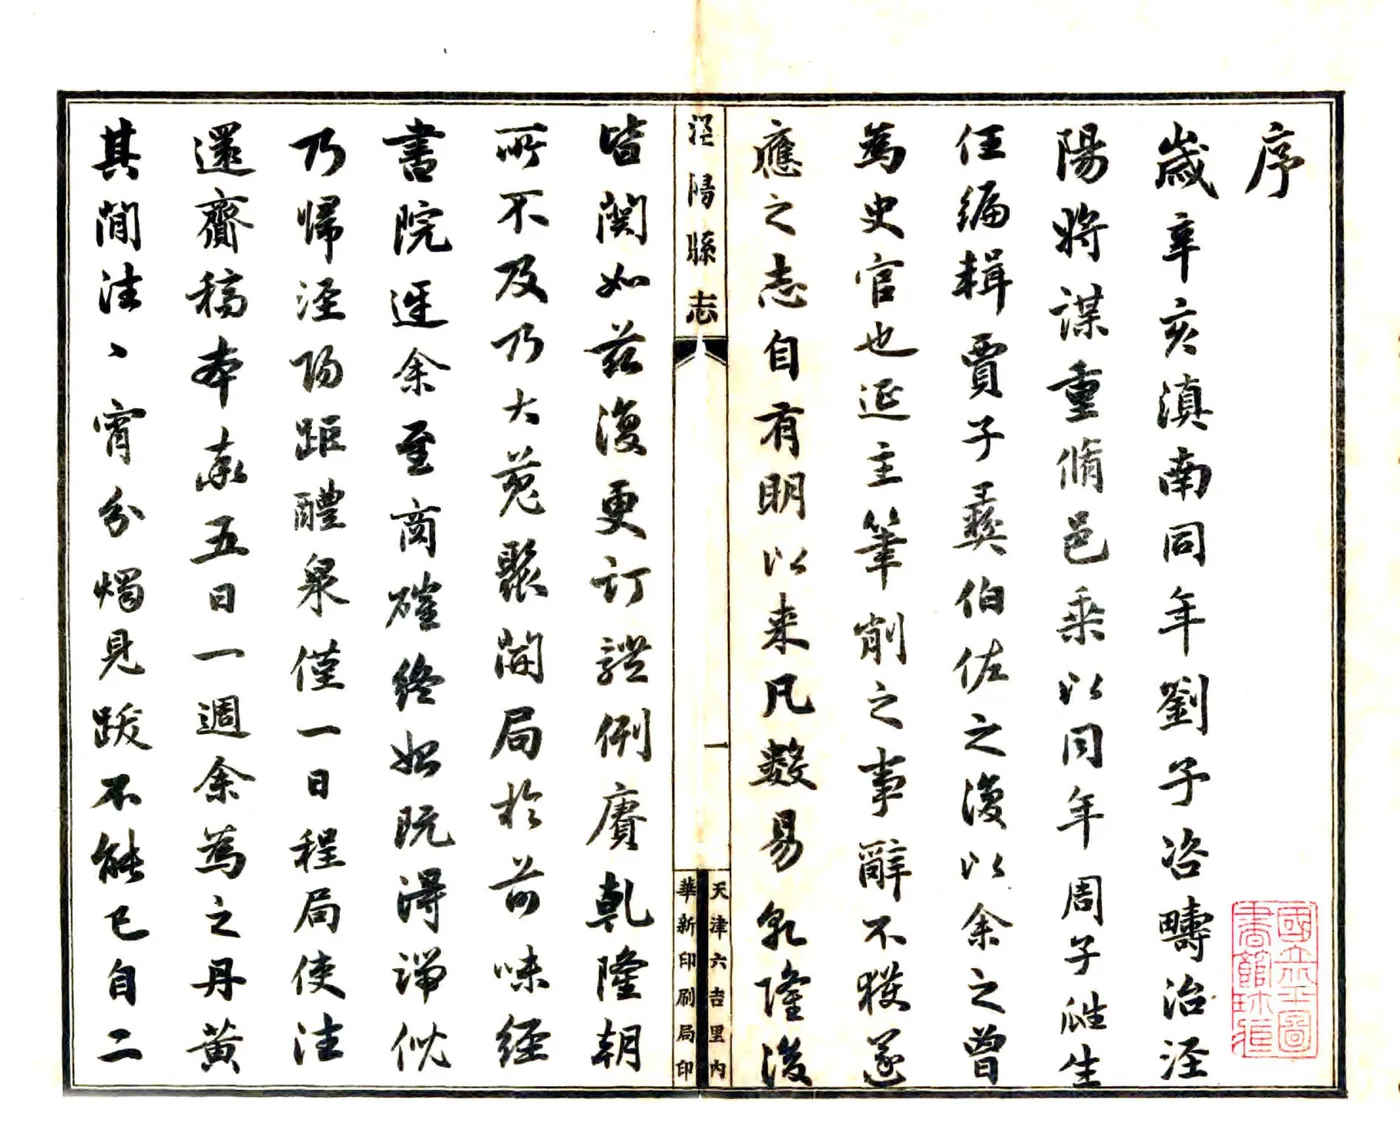 序
歲辛亥滇南同年劉子咨疇治涇
陽將謀重脩邑乘以同年周子雝生
任編輯賈子彝伯佐之復以余之曾
為史官也延主筆削之事辭不獲遂
應之志自有明以来凡數易乾隆後
涇陽縣志
一
天津六吉里內
華新印刷局印
皆闕如茲復更訂體例賡乾隆朝
所不及乃大蒐聚開局於前味經
書院迓余至商確終始既得端倪
乃歸涇陽距醴泉僅一日程局使往
還齎稿本率五日一週余為之丹黃
其間往丶宵分燭見跋不能已自二
國立北平圖書館珍藏